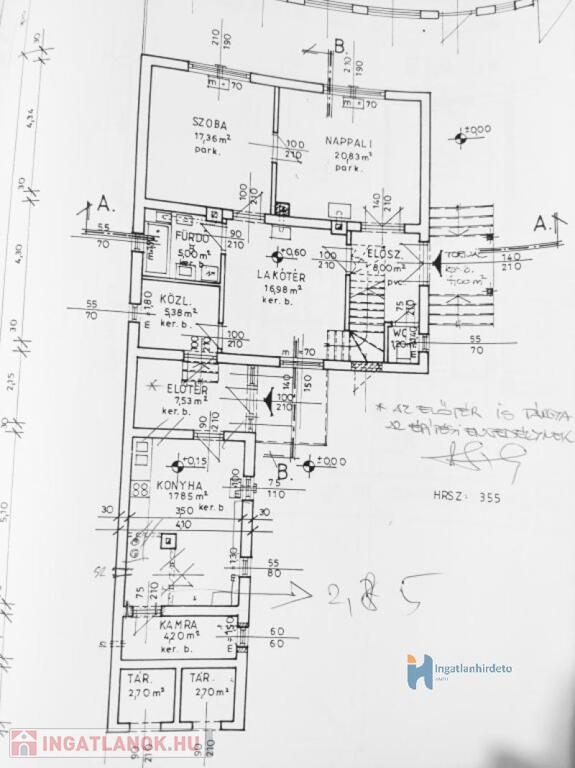 210
190
B.
210
190
m 70
m 70
4,34
SZOBA
17,36 m²
park.
100
210
NAPPALI
20,83 m²
park.
±0,00
30
A.
55
70
100
210
90
210
140
210
A.
FÜRDŐ
5,00 m²
ker. b.
+0,60
LAKÓTÉR
16,98 m²
ker. b.
100
210
ELŐSZ.
8,00 m²
pvc
140
210
4,30
KÖZL.
5,38 m²
ker. b.
55
70
m 180
75
210
WC
1,20 m²
m 140
55
70
30
100
210
m 70
140
150
2,15
* ELŐTÉR
7,53 m²
ker. b.
100
210
* AZ ELŐTÉR IS TÁRGYA
AZ ÉPÍTÉSI ENGEDÉLYNEK
30
90
210
B.
±0,00
+0,15
KONYHA
17,85 m²
ker. b.
m 100
75
110
HRSZ: 355
5,10
30
350
30
410
m 130
55
80
75
210
2,85
KAMRA
4,20 m²
ker. b.
m 150
60
60
TÁR.
2,70 m²
TÁR.
2,70 m²
Ingatlanhirdeto
INGATLANOK.HU
90
210
90
210